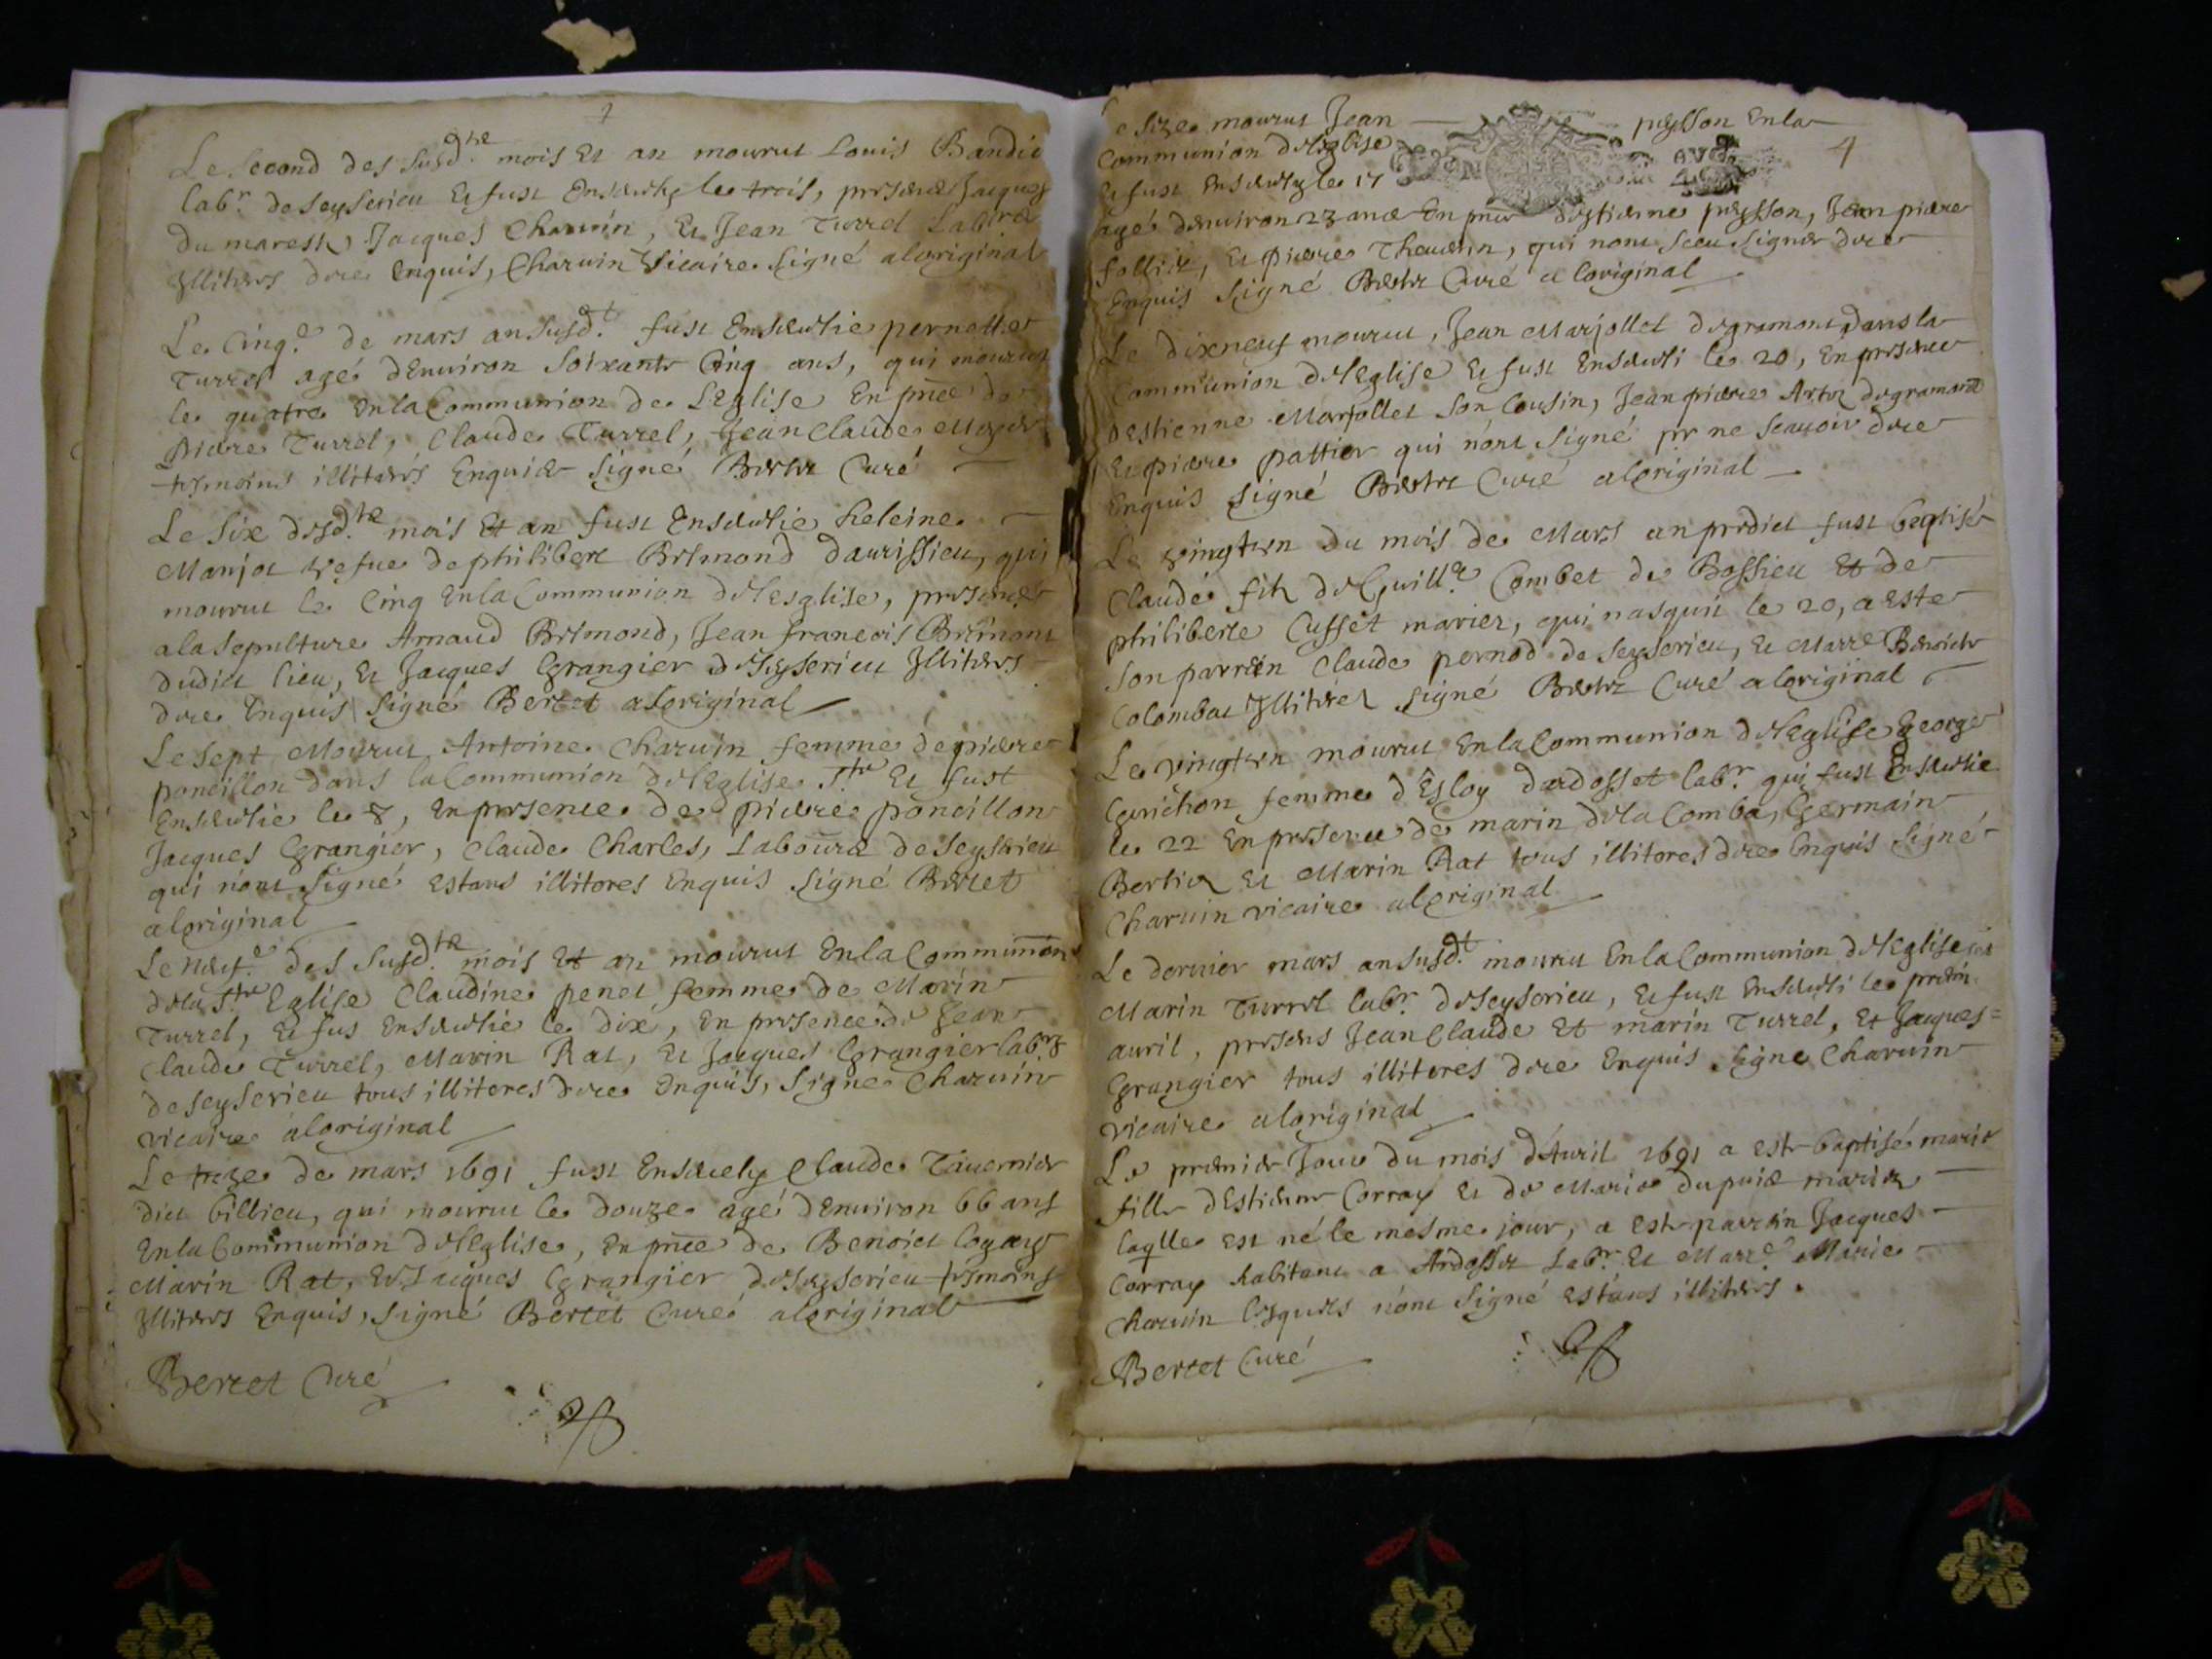 Le second des susd.tz mois et an mourut Louis Bandit
labr. de seyserieu et fust ensevely le trois, presens Jacques
du marest, Jacques Charvin, et Jean Turrel
illiteres de ce enquis, Charvin vicaire signé a loriginal
Le cinqe. de mars an susd.t fust ensevelie pernette
Turrel agé d'environ soixante cinq ans, qui mourut
le quatre en la Communion de L'Eglise en pnce de
pierre Turrel, Claude Turrel, Jean Claude
tesmoins illiteres enquis signé Bertet Curé
Le six desd.tz mois et an fust ensevelie heleine
Marjot vefue de philibert Bremond d'aurissieu, qui
mourut le cinq en la Communion de l'esglise, presens
a la sepulture Arnaud Bremond, Jean francois Bremond
dudict lieu, et Jacques Grangier de seyserieu illiteres
de ce enquis signé Bertet a loriginal
Le sept mourut Antoine Charvin femme de pierre
poncillon dans la Communion de l'Eglise S.te et fust
ensevelie le 8, en presence de pierre poncillon
Jacques Grangier, Claude Charles, Laboure de seyserieu
qui n'ont signé estans illiteres enquis signé Bertet
a loriginal
Le neufe. des susd.tz mois et an mourut en la Communion
de la S.te Eglise Claudine penet femme de Marin
Turrel, et fus ensevelie le dixe, en presence de Jean
Claude Turrel, Marin Rat, et Jacques Grangier labrs
de seyserieu tous illiteres de ce enquis, signe Charvin
vicaire a loriginal
Le treze de mars 1691 fust ensevely Claude Tavernier
dict billieu, qui mourut le douze agé d'environ 66 ans
en la Communion de l'Eglise, en pnce de Benoict
Marin Rat, et Jacques Grangier de seyserieu tesmoins
illiteres enquis, signé Bertet Curé a loriginal
Bertet Curé
Le size mourut Jean peysson en la
Communion de l'Eglise
et fust ensevely le 17
4
agé d'environ 23 ans en pnce d'estienne peysson, Jean pierre
et pierre Thevenin, qui n'ont sceu signer de ce
enquis signé Bertet Curé a loriginal
Le dixneuf mourut, Jean Marjollet de gramont dans la
Communion de l'Eglise et fust enseveli le 20, en presence
d'estienne Marjollet son cousin, Jean pierre de gramont
et pierre pattier qui n'ont signé pr ne scavoir de ce
enquis signé Bertet Curé a loriginal
Le vingt un du mois de Mars an predict fust baptisé
Claude fils de Guille. Combet de Bossieu et de
philiberte Cusset mariez, qui nasquit le 20, a esté
son parrein Claude pernod de seyserieu, et Marre Benoicte
Colombat illiterez signé Bertet Curé a loriginal
Le vingt un mourut en la Communion de l'Eglise george
Guichon femme d'Esloy d'ardosset labr. qui fust ensevelie
le 22 en presence de marin de la Comba, Germain
Bertier et Marin Rat tous illiteres de ce enquis signé
Charvin vicaire a loriginal
Le dernier mars an susd.t mourut en la Communion de l'Eglise
Marin Turrel labr. de seyserieu, et fust enseveli le prem.
avril, presens Jean Claude et marin Turrel, et Jacques
Grangier tous illiteres de ce enquis signe Charvin
vicaire a loriginal
Le premier jour du mois d'Avril 1691 a esté baptisé marie
fille d'Estienne Corray et de Marie dupuis mariez
laqlle est né le mesme jour, a esté parrein Jacques
Corray habitant a Ardosset labr. et Marre. Marie
Charvin lesquels n'ont signé estans illiteres.
Bertet Curé